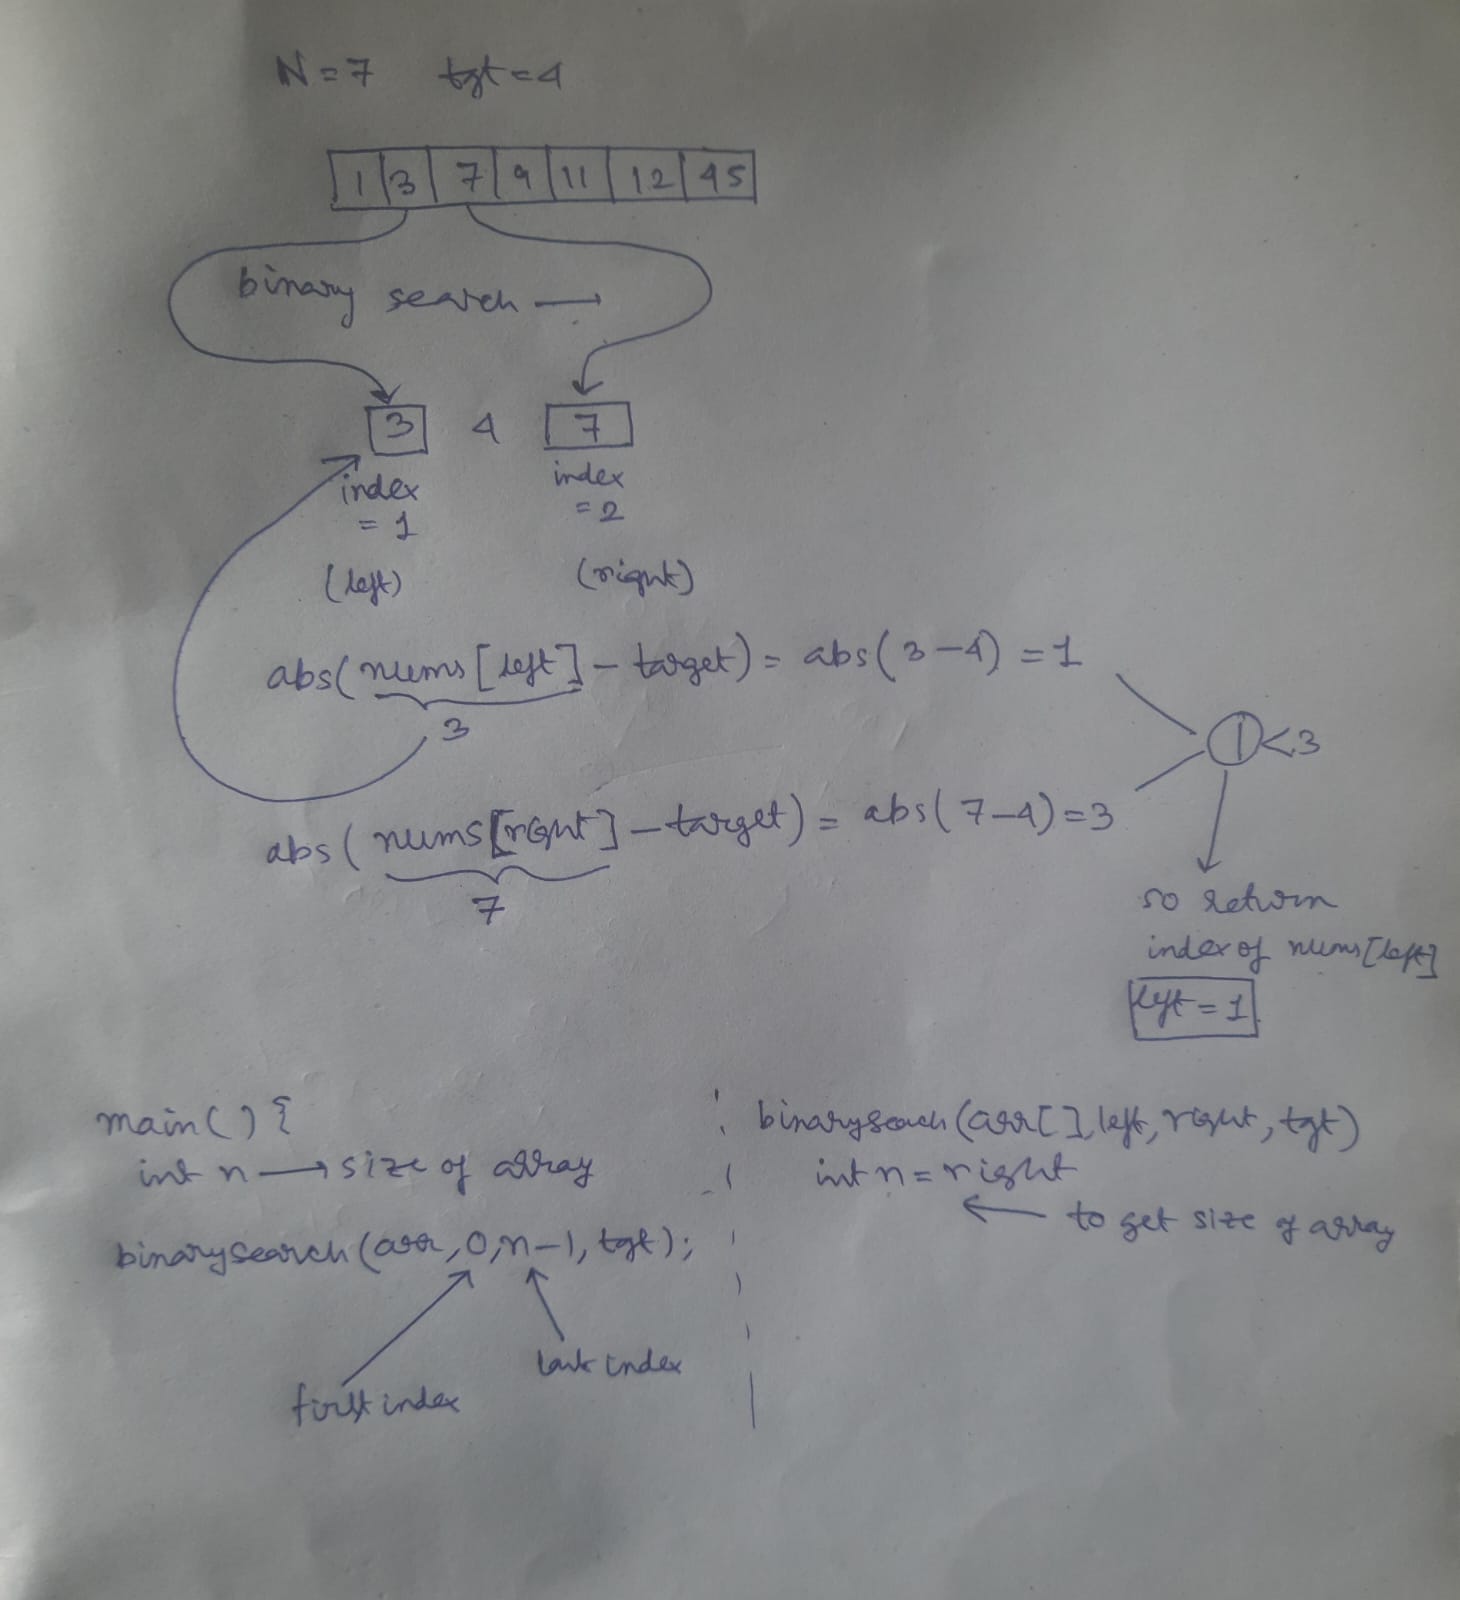 N=7 tgt=4
1 3 7 9 11 12 45
binary search →
3 4 7
index =1 (left)
index =2 (right)
abs(nums[left]-target) = abs(3-4) = 1
3
1<3
abs(nums[right]-target) = abs(7-4)=3
7
so return
index of nums[left]
left=1
main(){
int n → size of array
binarysearch(arr,0,n-1,tgt);
first index
last index
binaryseach(arr[],left,right,tgt)
int n=right
← to get size of array